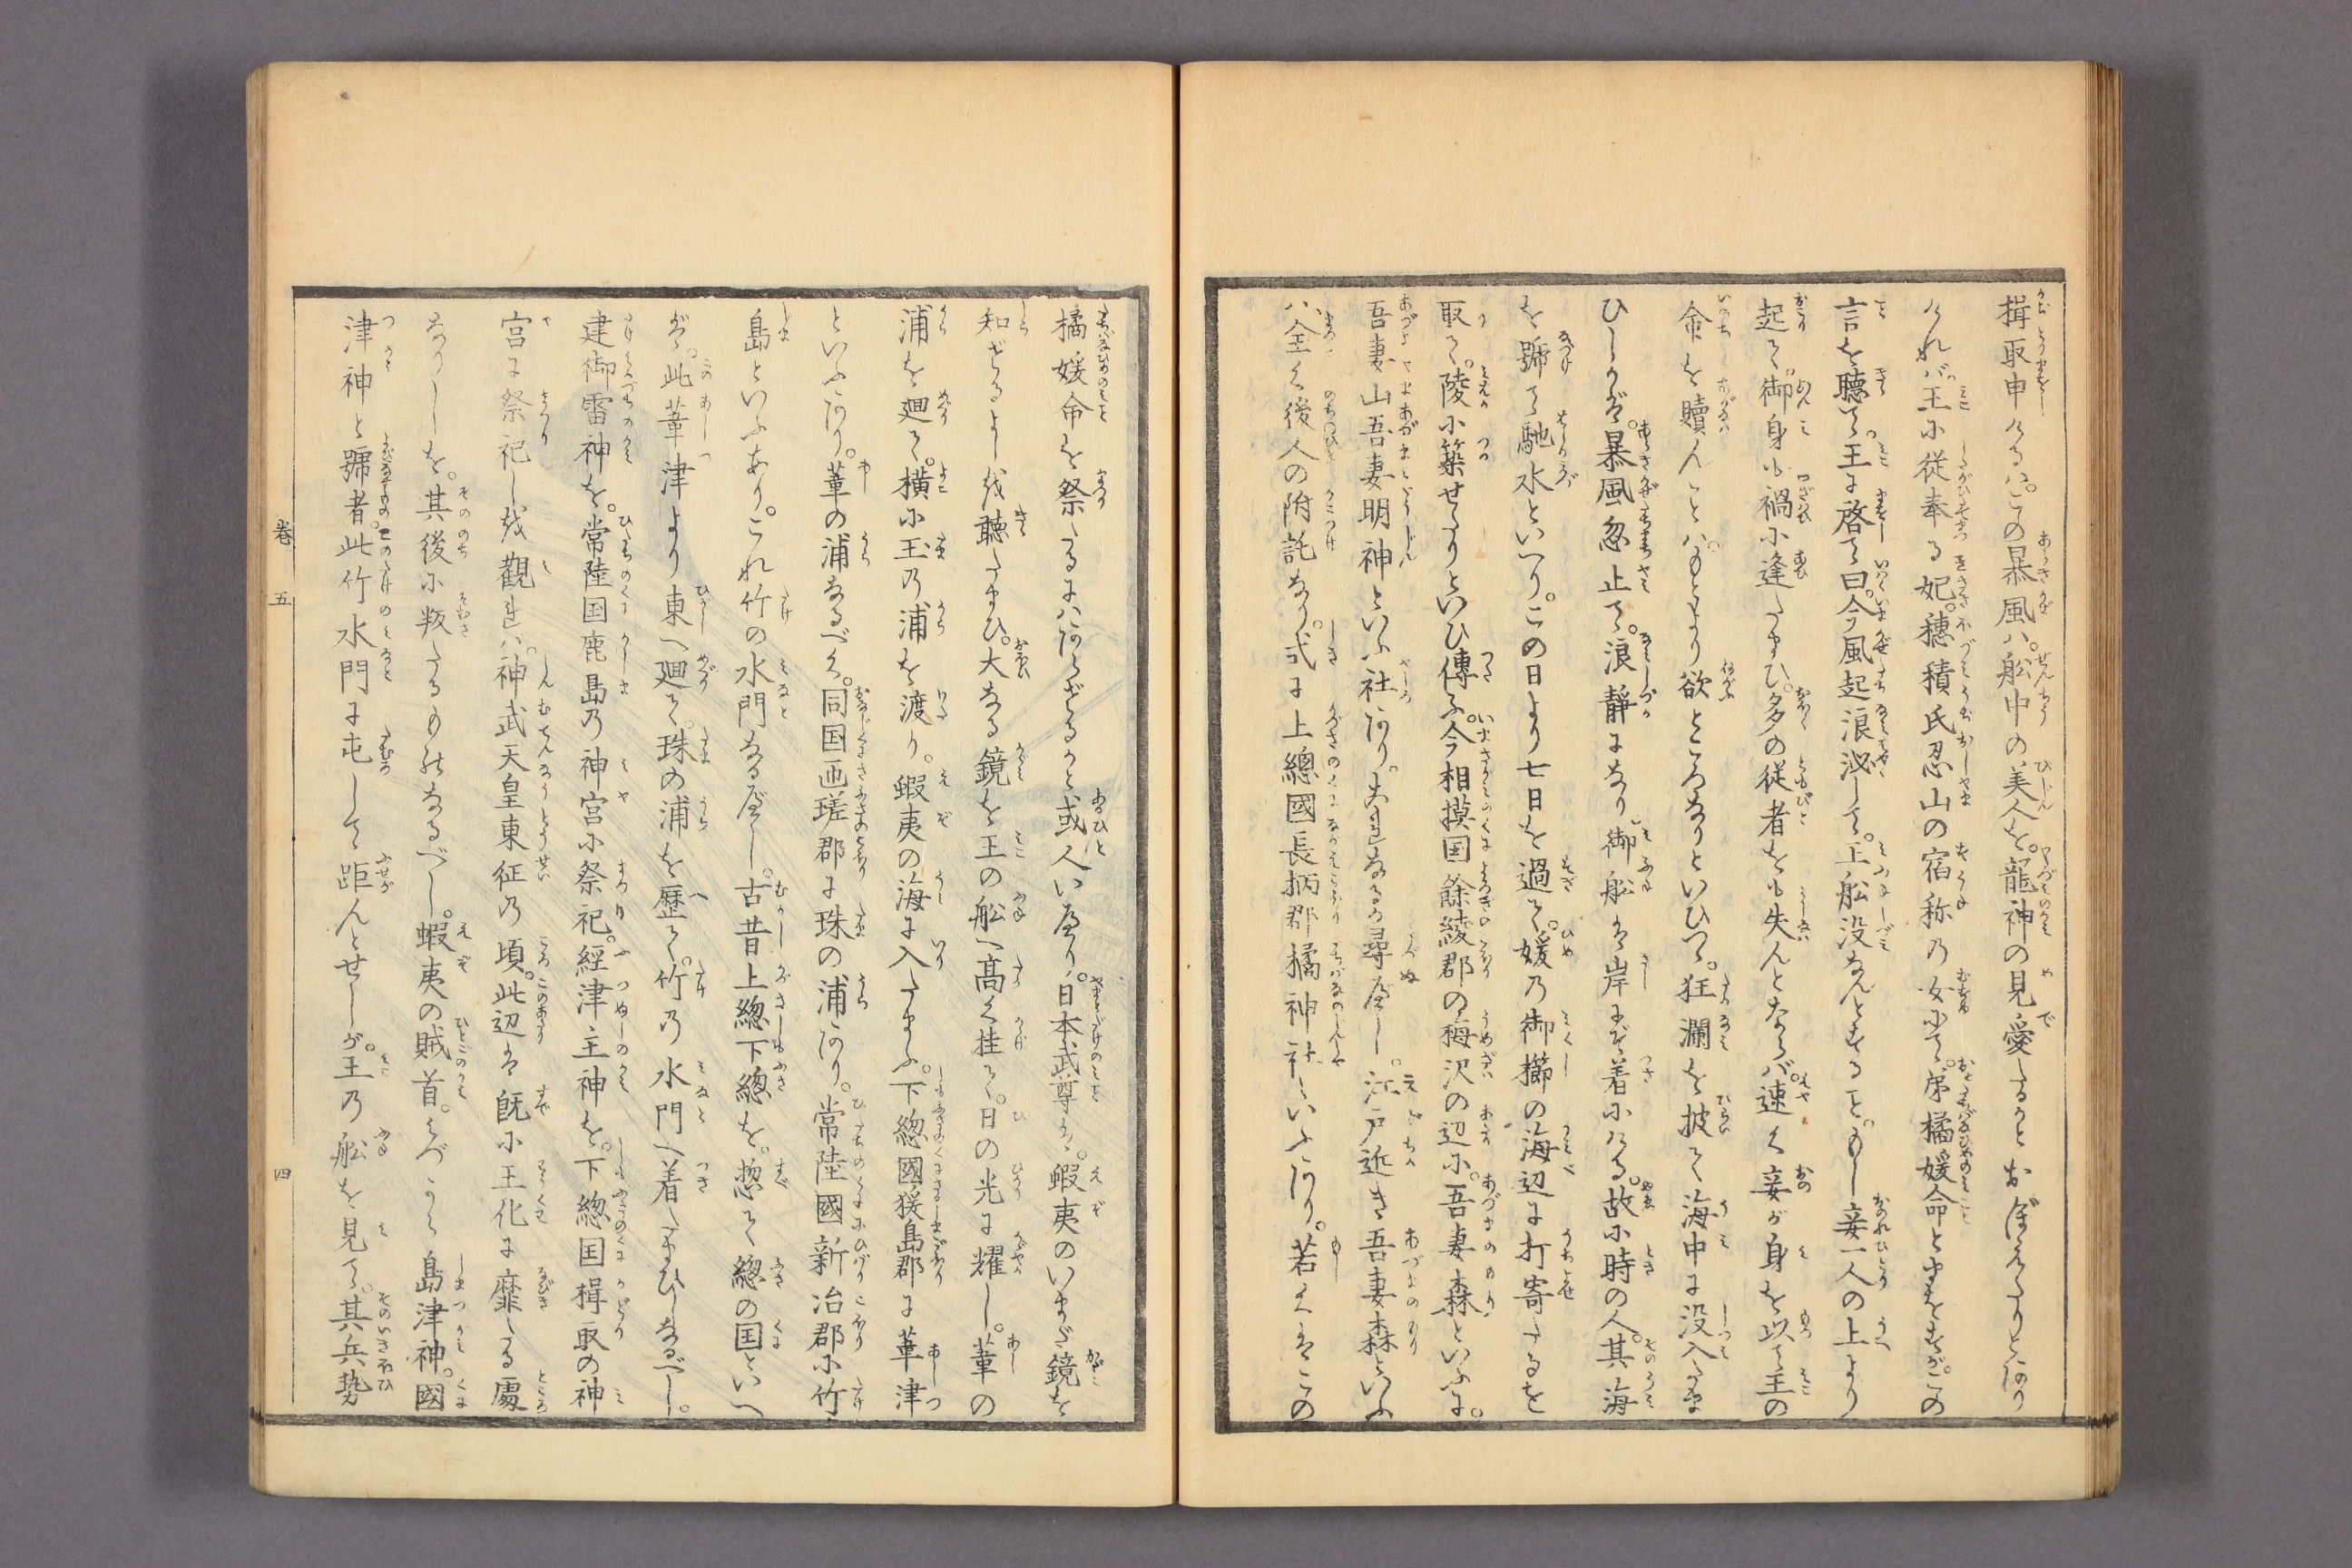 揖取申けるハ。この暴風ハ。舩中の美人を。龍神の見愛たるかとおぼえたりとあり
けれバ。王に従奉る妃。穂積氏忍山の宿祢の女にて。弟橘媛命とまをすが。この
言を聴て。王に啓て曰。今風起浪泌して。王舩没なんとすること。もし妾一人の上より
起て。御身も禍に逢たまひ。多の従者をも失んとならバ。速く妾が身を以て王の
命を贖んことハ。もとより欲ところなりといひつゝ。狂瀾を披て海中に没入たま
ひしかば。暴風忽止て。浪静になり。御舩ハ岸にぞ着にける。故に時の人。其海
を號て馳水といへり。この日より七日を過て。媛乃御櫛の海辺に打寄たるを
取て。陵に築せたりといひ傳ふ。今相摸国餘綾郡の梅沢の辺に。吾妻森といふに。
吾妻山吾妻明神といふ社あり。これなるか尋べし。江戸近き吾妻森といふ
ハ全く後人の附託なり。或に上總國長柄郡橘神社といふあり。若くはこの
橘媛命を祭たるにハあらざるかと或人いへり。日本武尊ハ。蝦夷のいまだ鏡を
知ざるよしを聴たまひ。大なる鏡を王の舩へ高く挂て。日の光に耀し。葦の
浦を廻て。横に玉乃浦を渡り。蝦夷の海に入たまふ。下總國猨島郡に葦津
といふあり。葦の浦なるべく。同国匝瑳郡に珠の浦あり。常陸國新治郡に竹
島といふあり。これ竹の水門なるべし。古昔上總下總を。惣て總の国といへ
ば。此葦津より東へ廻て。珠の浦を歴て。竹乃水門へ着たまひしなるべし。
建御雷神を。常陸国鹿島乃神宮に祭祀。經津主神を。下總国揖取の神
宮に祭祀しを觀れハ。神武天皇東征乃頃。此辺は既に王化に靡たる處
なりしを。其後に叛たるものなるべし。蝦夷の賊首。みづから島津神。國
津神と號者。此竹水門に屯して距んとせしが。王乃舩を見て。其兵勢
巻五
四